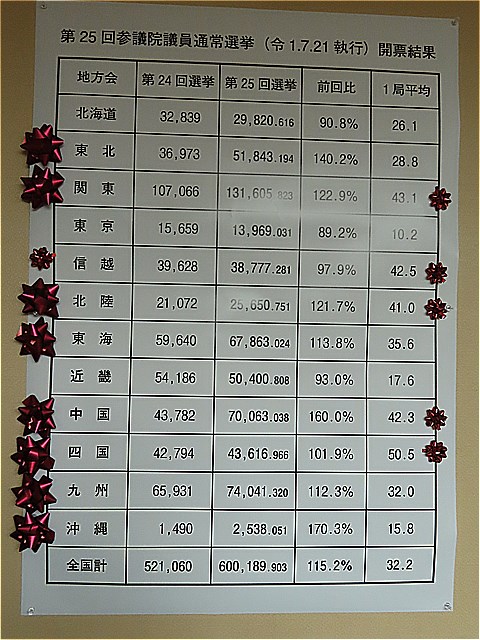 第25回参議院議員通常選挙（令1.7.21執行）開票結果
地方会 第24回選挙 第25回選挙 前回比 1局平均
北海道 32,839 29,820.616 90.8% 26.1
東北 36,973 51,843.194 140.2% 28.8
関東 107,066 131,605.823 122.9% 43.1
東京 15,659 13,969.031 89.2% 10.2
信越 39,628 38,777.281 97.9% 42.5
北陸 21,072 25,650.751 121.7% 41.0
東海 59,640 67,863.024 113.8% 35.6
近畿 54,186 50,400.808 93.0% 17.6
中国 43,782 70,063.038 160.0% 42.3
四国 42,794 43,616.966 101.9% 50.5
九州 65,931 74,041.320 112.3% 32.0
沖縄 1,490 2,538.051 170.3% 15.8
全国計 521,060 600,189.903 115.2% 32.2